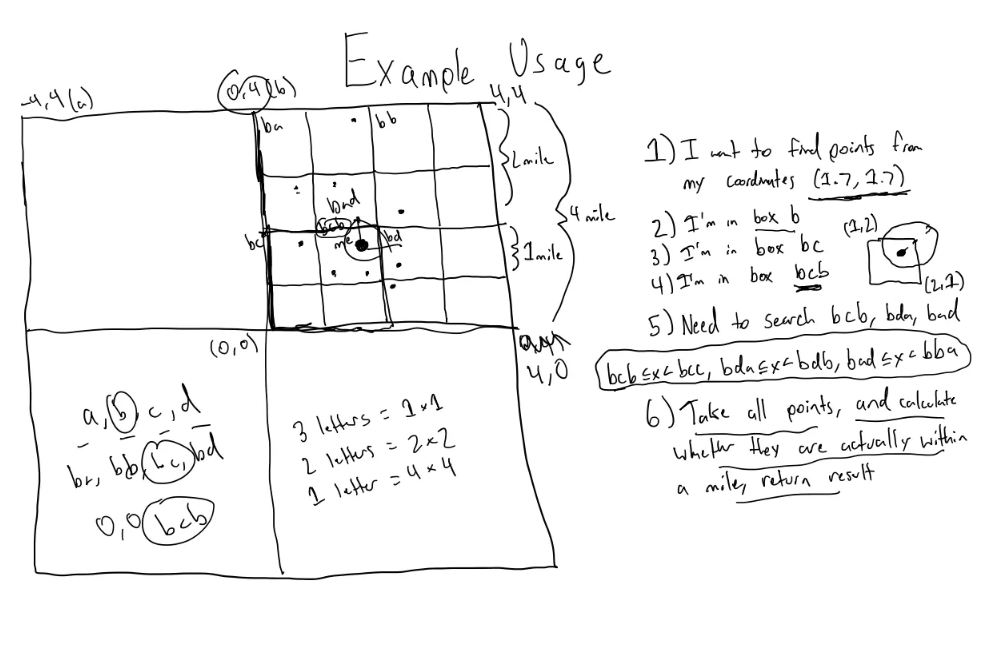 Example Usage
-4,4 (a)
0,4 (b)
4,4
ba
bb
2 mile
4 mile
bad
bcb
bc
me
bd
1 mile
(0,0)
4,0
a, b, c, d
ba, bb, bc, bd
0,0 bcb
3 letters = 1x1
2 letters = 2x2
1 letter = 4x4
1) I want to find points from
my coordinates (1.7, 1.7)
2) I'm in box b
3) I'm in box bc
4) I'm in box bcb
(1,2)
(2,1)
5) Need to search bcb, bda, bad
bcb ≤ x < bcc, bda ≤ x < bdb, bad ≤ x < bba
6) Take all points, and calculate
whether they are actually within
a mile, return result